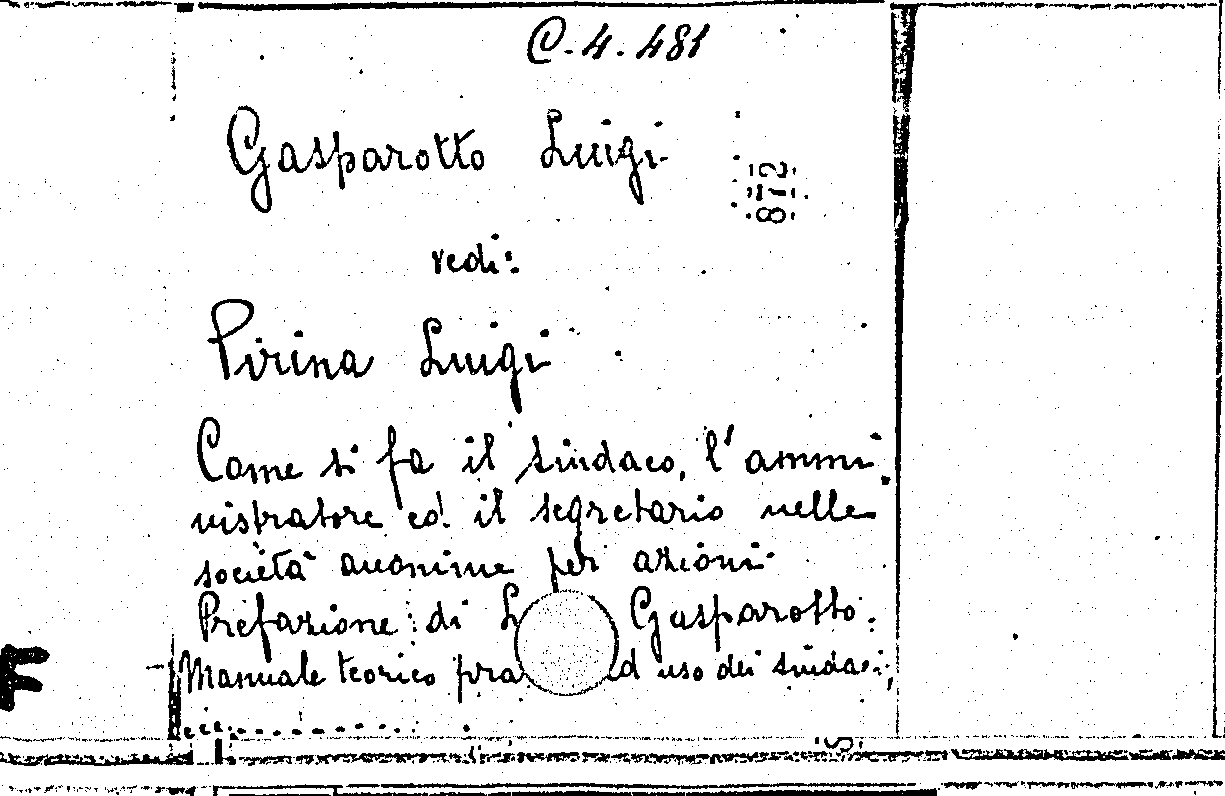 C. 4. 481
Gasparotto Luigi
872
vedi:
Pirina Luigi
Come si fa il sindaco, l'ammi
nistratore ed il segretario nelle
società anonime per azioni
Prefazione di L Gasparotto.
Manuale teorico pra d uso dei sindaci,
ecc..........